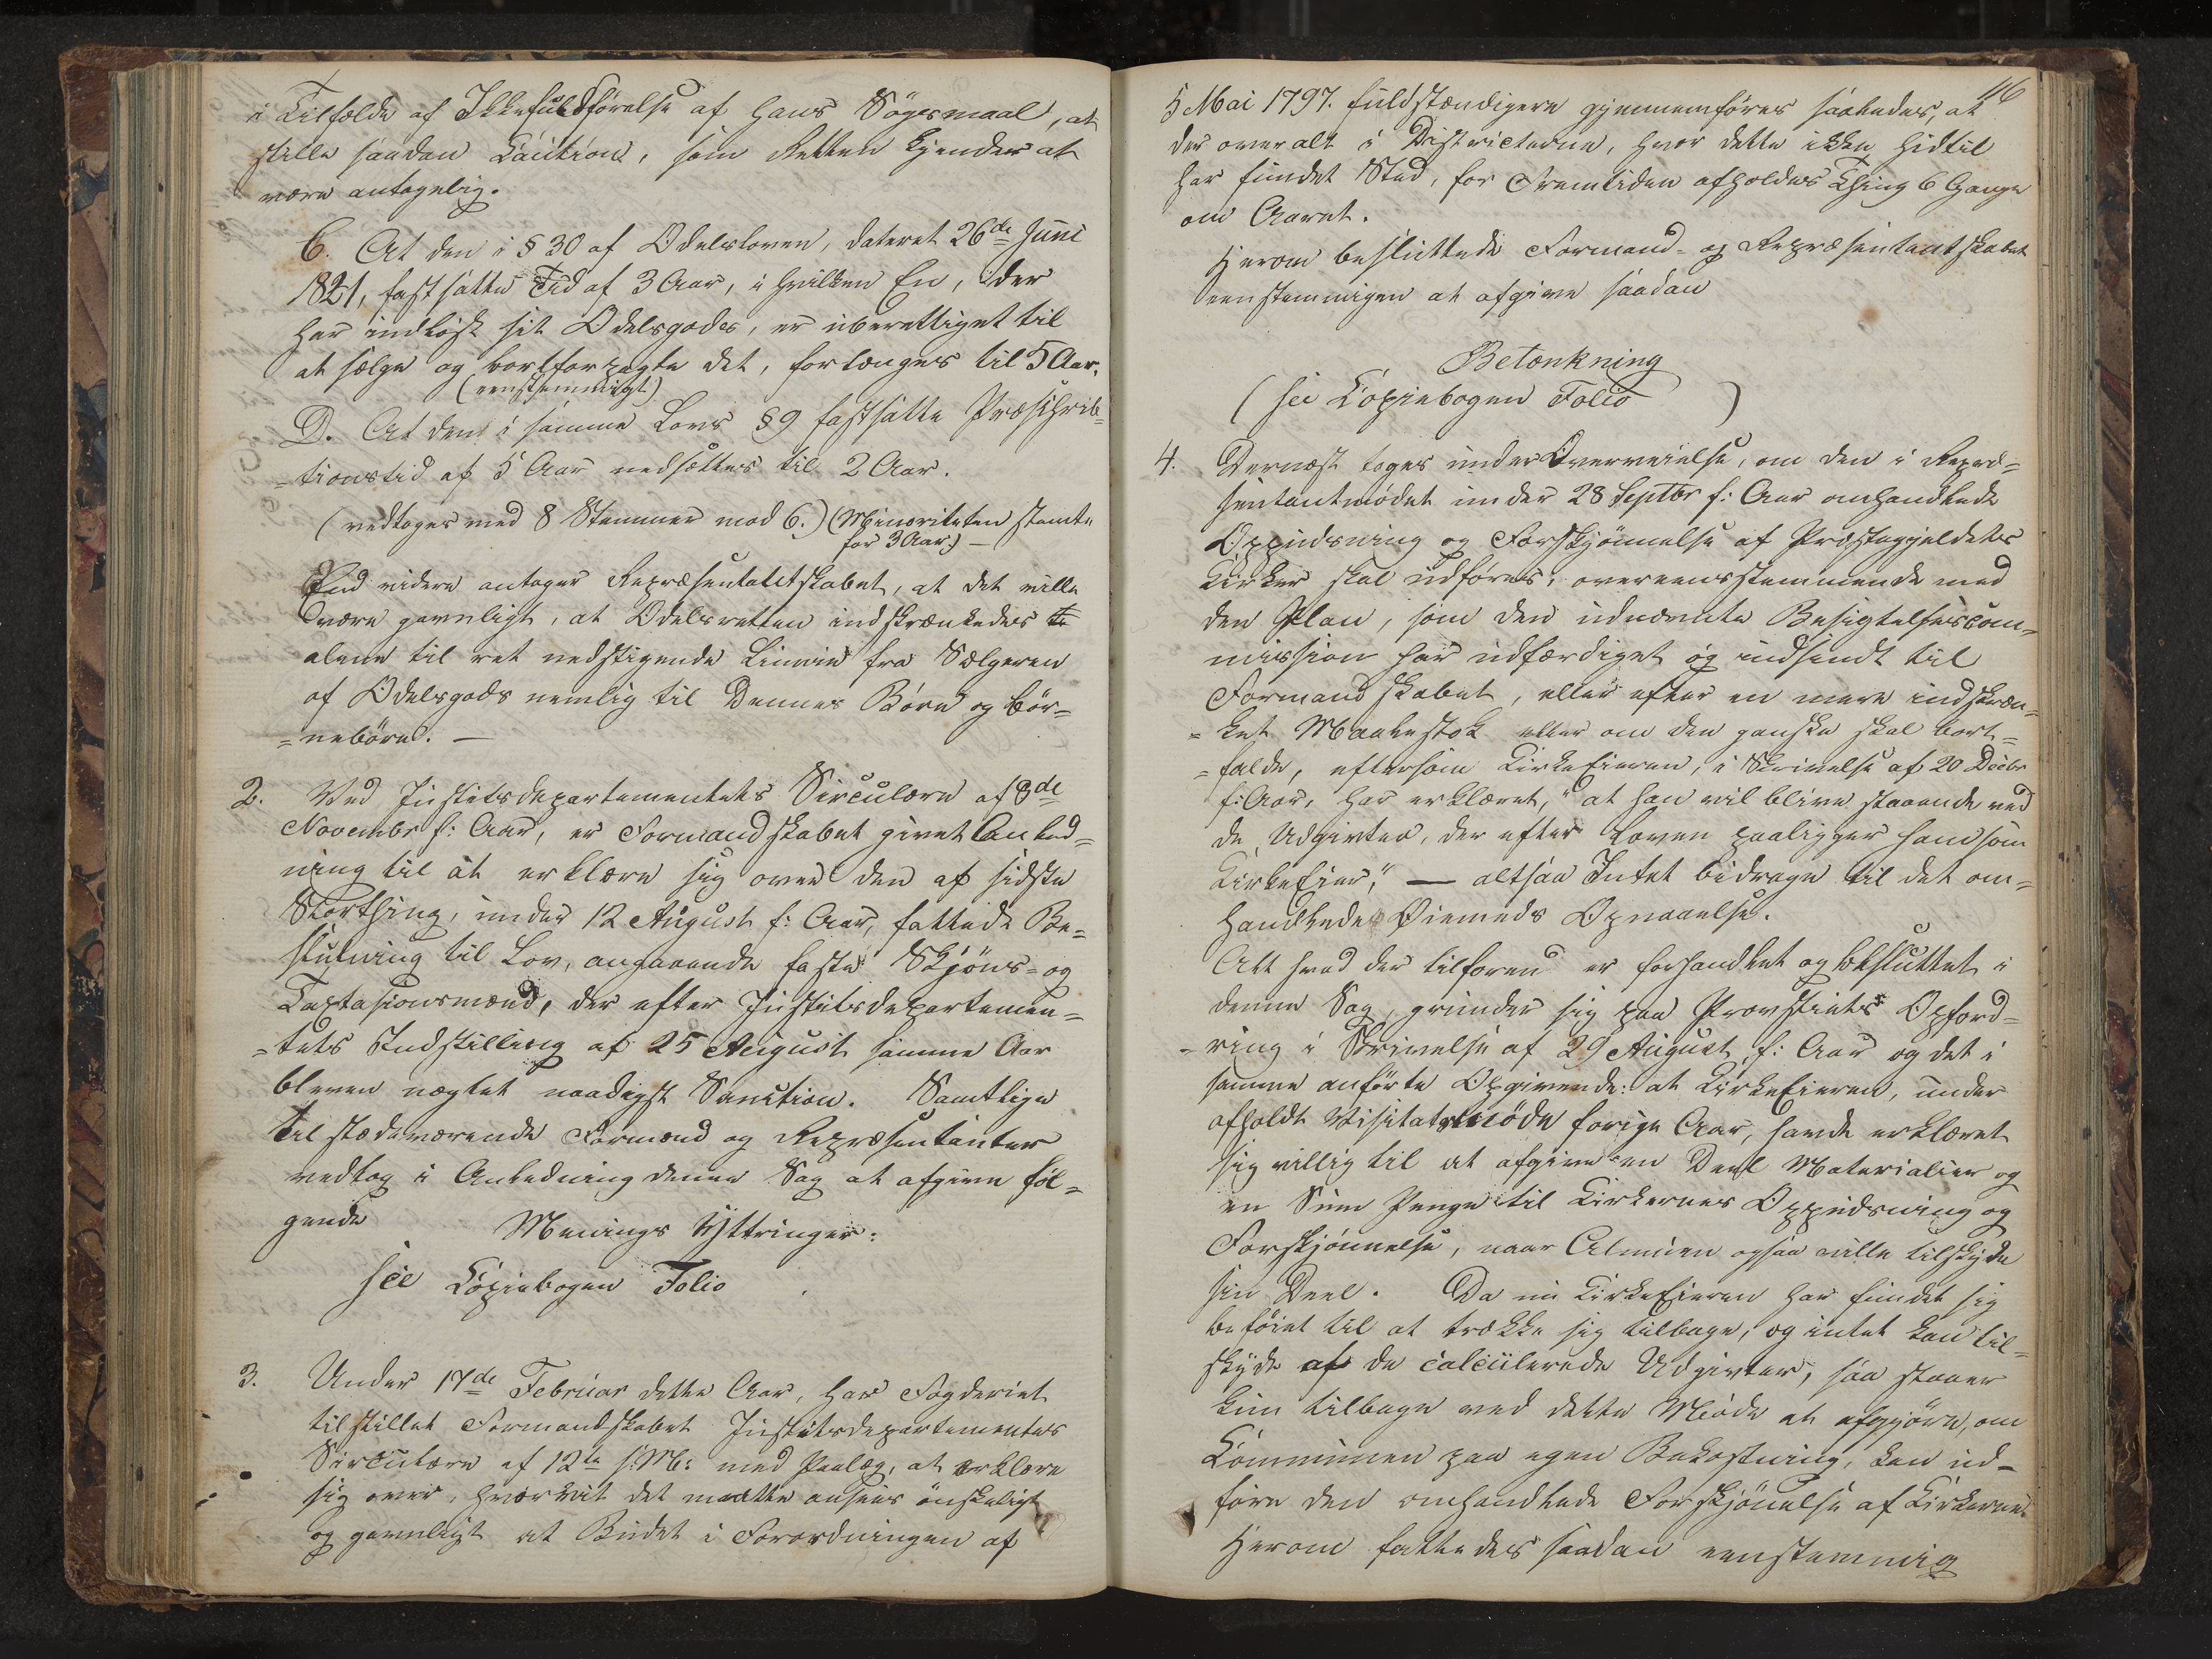 i Tilfælde af Ikkefuldførelse af hans Søgsmaal, at
stille saadan Caution, som Retten kjender at
være antagelig.
C. At den i § 30 af Odelsloven, dateret 26de Juni
1821, fastsatte Tid af 3 Aar, i hvilken En, der
har indløst sit Odelsgods, er uberettiget til
at sælge og bortforpagte det, forlænges til 5 Aar.
(eenstemmigt)
D. At den i samme Lovs § 9 fastsatte Præscrib-
-tionstid af 5 Aar nedsættes til 2 Aar.
(vedtoges med 8 Stemmer mod 6.) (Minoriteten stemte
for 3 Aar) —
End videre antager Repræsentantskabet, at det ville
være gavnligt, at Odelsretten indskrænkedes
alene til ret nedstigende Linnie fra Sælgeren
af Odelsgods nemlig til Dennes Børn og Bør-
=nebørn. —
2. Ved Justitsdepartementets Circulære af 8de
Novembr f: Aar, er Formandskabet givet Anled=
ning til at erklære sig over den af sidste
Storthing, under 12 August f: Aar, fattede Be=
slutning til Lov, angaaende faste Skjøns= og
Taxtasionsmænd, der efter Justitsdepartemen=
=tets Indstilling af 25 August samme Aar
bleven nægtet naadigst Sanction. Samtlige
tilstædeværende Formænd og Repræsentanter
vedtog i Anledning denne Sag at afgive føl=
gende Menings Yttringer:
see Copiebogen Folio .
3. Under 17de Februar dette Aar, har Fogderiet
tilstillet Formandskabet Justitsdepartementets
Circulære af 12te s: M: med Paalæg, at erklære
sig over, hvorvit det maatte ansees ønskeligt
og gavnligt at Budet i Forordningen af
116
5 Mai 1797. fuldstændigere gjennemføres saaledes, at
der overalt i Districterne, hvor dette ikke hidtil
har fundet Sted, for Fremtiden afholdes Thing 6 Gange
om Aaret.
Herom besluttede Formand- og Repræsentantskabet
eenstemmigen at afgive saadan
Betænkning
(see Copiebogen Folio )
4. Dernæst toges under Overveielse, om den i Repræ=
sentantmødet under 28 Septbr f: Aar omhandlede
Oppudsning og Forskjønnelse af Præstegjeldets
Kirker skal udføres, overeensstemmende med
den Plan, som den udnævnte Besigtelsescom=
mission har udfærdiget og indsendt til
Formandskabet, eller efter en mere indskræn=
=ket Maalestok eller om den ganske skal bort=
=falde, eftersom Kirkeeieren, i Skrivelse af 20 Decbr
f: Aar, har erklæret, "at han vil blive staaende ved
de Udgivter, der efter Loven paaligger ham som
Kirkeeier," — altsaa Intet bidrage til det om=
handlede Øiemeds Opnaaelse.
Alt hvad der tilforen er forhandlet og besluttet i
denne Sag, grunder sig paa Provstiets Opford=
=ring i Skrivelse af 29 August f: Aar og det i
samme anførte Opgivende: at Kirkeeieren, under
afholdt Visitatsmøde forige Aar, havde erklæret
sig villig til at afgive en Deel Materialier og
en Sum Penge til Kirkernes Oppudsning og
Forskjønnelse, naar Almuen ogsaa ville tilskyde
sin Deel. Da nu Kirkeeieren har fundet sig
beføiet til at trække sig tilbage, og intet kan til=
skyde af de calculerede Udgivter, saa staaer
kun tilbage ved dette Møde at afgjøre, om
Communen paa egen Bekostning, kan ud=
føre den omhandlede Forskjønnelse af Kirkerne.
Herom fattedes saadan eenstemmig